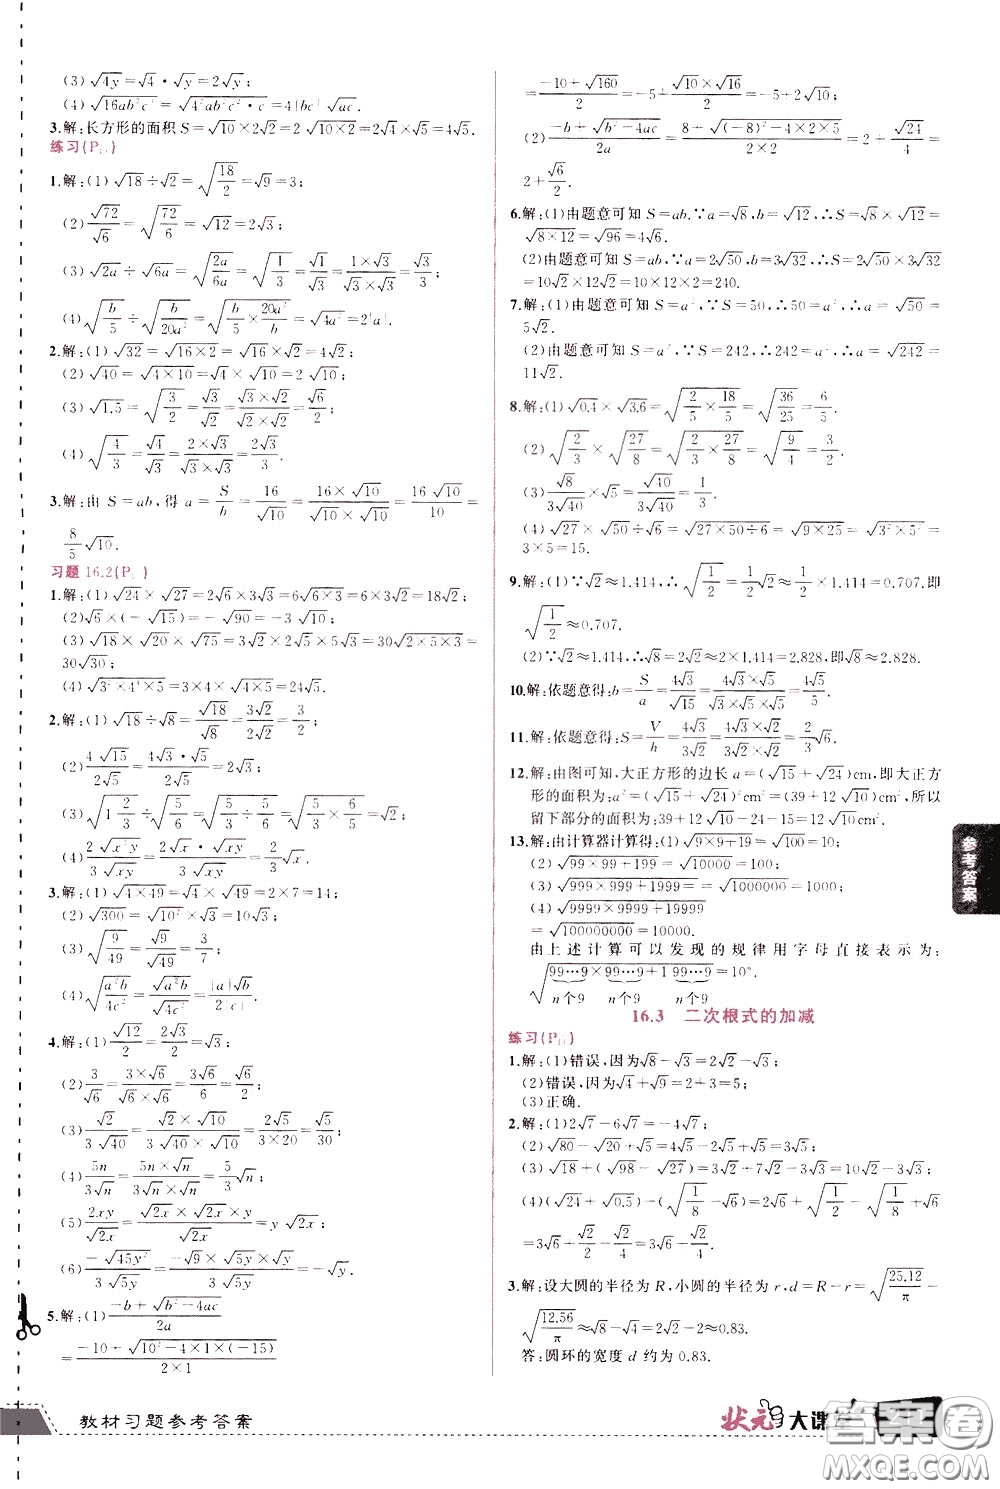 (3)√4y=√4·√y=2√y;
(4)√16ab²c³=√4²ab²c²·c=4|bc|√ac.
3.解:长方形的面积S=√10×2√2=2√10×2=2√4×√5=4√5.
练习(P
1.解:(1)√18÷√2=√(18/2)=√9=3;
(2)√72/√6=√(72/6)=√12=2√3;
(3)√2a÷√6a=√(2a/6a)=√(1/3)=√1/√3=(1×√3)/(√3×√3)=√3/3;
(4)√(b/5)÷√(b/20a²)=√(b/5×20a²/b)=√4a²=2|a|.
2.解:(1)√32=√16×2=√16×√2=4√2;
(2)√40=√4×10=√4×√10=2√10;
(3)√1.5=√(3/2)=√3/√2=(√3×√2)/(√2×√2)=√6/2;
(4)√(4/3)=√4/√3=(2×√3)/(√3×√3)=2√3/3.
3.解:由S=ab,得a=S/b=16/√10=(16×√10)/(√10×√10)=16√10/10=
8/5√10.
习题16.2(P
1.解:(1)√24×√27=2√6×3√3=6√6×3=18√2;
(2)√6×(-√15)=-√90=-3√10;
(3)√18×√20×√75=3√2×2√5×5√3=30√2×5×3=
30√30;
(4)√3²×4³×5=3×4×√4×5=24√5.
2.解:(1)√18÷√8=√18/√8=3√2/2√2=3/2;
(2)4√15/2√5=4√3·√5/2√5=2√3;
(4)2√x²y/3√xy=2√x·√xy/3√xy=2√x/3.
3.解:(1)√4×49=√4×√49=2×7=14;
(2)√300=√10²×√3=10√3;
(3)√(9/49)=√9/√49=3/7;
(4)√(a²b/4c²)=√a²b/√4c²=|a|√b/2|c|.
4.解:(1)2/√12=2√3/6=√3/3;
(2)3/√6=(3×√6)/(√6×√6)=3√6/6=√6/2;
(3)√2/3√40=(√2×√10)/(3√40×√10)=√20/(3×20)=√5/30;
(4)5n/3√n=(5n×√n)/(3√n×√n)=5/3√n;
(5)2xy/√2x=(√2x×√2x×y)/√2x=y√2x;
(6)-√45y²/3√5y=(-√9×√5y×√y)/3√5y=-√y.
5.解:(1)(-b+√b²-4ac)/2a
=(-10+√10²-4×1×(-15))/(2×1)
=(-10+√160)/2=-5+√160/2=-5+(√10×√16)/2=-5+2√10.
(2)(-b+√b²-4ac)/2a=(8+√(-8)²-4×2×5)/(2×2)=2+√24/4=
2+√6/2.
6.解:(1)由题意可知S=ab.∵a=√8,b=√12,∴S=√8×√12=
√8×12=√96=4√6.
(2)由题意可知S=ab,∵a=2√50,b=3√32,∴S=2√50×3√32
=10√2×12√2=10×12×2=240.
7.解:(1)由题意可知S=a²,∵S=50,∴50=a²,∴a=√50=
5√2.
(2)由题意可知S=a²,∵S=242,∴242=a²,∴a=√242=
11√2.
8.解:(1)√0.4×√3.6=√(2/5×18/5)=√(36/25)=6/5;
(2)√(2/3)×√(27/8)=√(2/3×27/8)=√(9/4)=3/2;
(3)√8/3×√5/√40=√40/3√40=1/3;
(4)√27×√50÷√6=√27×50÷6=√9×25=√3²×5²=
3×5=15.
9.解:(1)∵√2≈1.414,∴√(1/2)=1/2√2≈1/2×1.414=0.707,即
√(1/2)≈0.707.
(2)∵√2≈1.414,∴√8=2√2≈2×1.414=2.828,即√8≈2.828.
10.解:依题意得:b=S/a=4√3/√15=(4√3×√5)/(√3×√5×√5)=4√5/5.
11.解:依题意得:S=V/h=4√3/3√2=(4√3×√2)/(3√2×√2)=2/3√6.
12.解:由图可知,大正方形的边长a=(√15+√24)cm,即大正方
形的面积为:a²=(√15+√24)²cm²=(39+12√10)cm²,所以
留下部分的面积为:39+12√10-15-24=12√10(cm²).
13.解:由计算器计算得:(1)√9×9+19=√100=10;
(2)√99×99+199=√10000=100;
(3)√999×999+1999=√1000000=1000;
(4)√9999×9999+19999
=√100000000=10000.
由上述计算可以发现的规律用字母直接表示为:
√99…9×99…9+199…9=10ⁿ.
n个9 n个9 n个9
16.3 二次根式的加减
练习(P
1.解:(1)错误,因为√8-√3=2√2-√3;
(2)错误,因为√4+√9=2+3=5;
(3)正确.
2.解:(1)2√7-6√7=-4√7;
(2)√80-√20+√5=4√5-2√5+√5=3√5;
(3)√18+(√98-√27)=3√2+7√2-3√3=10√2-3√3;
(4)(√24+√0.5)-(√(1/8)-√6)=2√6+√(1/2)-√(1/8)+√6
=3√6+√2/2-√2/4=3√6+√2/4.
3.解:设大圆的半径为R,小圆的半径为r,d=R-r=√(25.12/π)-
√(12.56/π)≈√8-√4=2√2-2≈0.83.
答:圆环的宽度d约为0.83.
参考答案
教材习题参考答案
状元大课堂
答案卷
MXQE.COM